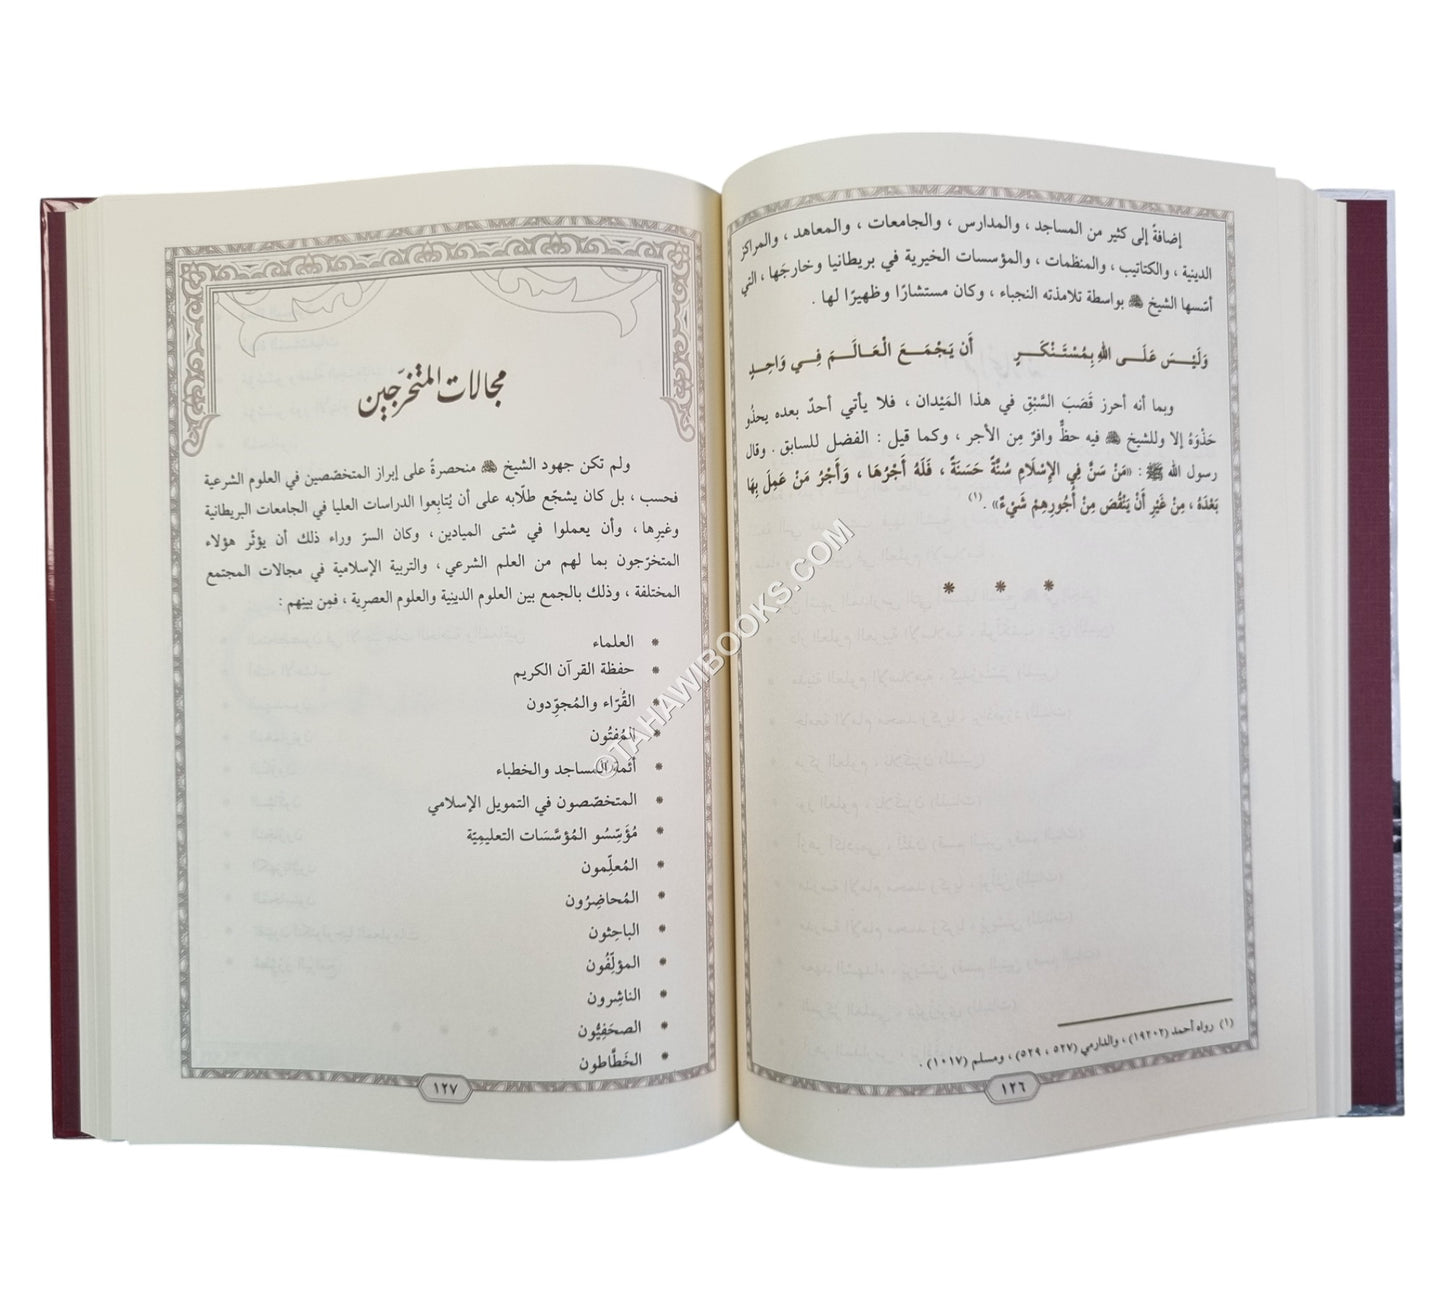 إضافةً إلى كثير من المساجد ، والمدارس ، والجامعات ، والمعاهد ، والمراكز
الدينية ، والكتاتيب ، والمنظمات ، والمؤسسات الخيرية في بريطانيا وخارجَها ، التي
أسّسها الشيخ بواسطة تلامذته النجباء ، وكان مستشارًا وظهيرًا لها .
وَلَيْسَ عَلَى اللهِ بِمُسْتَنْكَرٍ أَن يَجْمَعَ الْعَالَمَ فِي وَاحِدِ
وبما أنه أحرز قَصَبَ السَّبْقِ في هذا المَيْدان ، فلا يأتي أحدٌ بعده يحذُو
حَذْوَهُ إلا وللشيخ فيه حظٌّ وافرٌ مِن الأجر ، وكما قيل : الفضل للسابق . وقال
رسول الله ﷺ : «مَنْ سَنَّ فِي الإِسْلَامِ سُنَّةً حَسَنَةً ، فَلَهُ أَجْرُهَا ، وَأَجْرُ مَنْ عَمِلَ بِهَا
بَعْدَهُ ، مِنْ غَيْرِ أَنْ يَنْقُصَ مِنْ أُجُورِهِمْ شَيْءٌ» . (١)
* * *
(١) رواه أحمد (١٩٢٠٢) ، والدارمي (٥٢٧ ، ٥٢٩) ، ومسلم (١٠١٧) .
١٢٦
مجالات المتخرّجين
ولم تكن جهود الشيخ منحصرةً على إبراز المتخصّصين في العلوم الشرعية
فحسب ، بل كان يشجّع طلّابه على أن يُتابِعوا الدراسات العليا في الجامعات البريطانية
وغيرِها ، وأن يعملوا في شتى الميادين ، وكان السرّ وراء ذلك أن يؤثّر هؤلاء
المتخرّجون بما لهم من العلم الشرعي ، والتربية الإسلامية في مجالات المجتمع
المختلفة ، وذلك بالجمع بين العلوم الدينية والعلوم العصرية ، فمِن بينهم :
* العلماء
* حفظة القرآن الكريم
* القُرّاء والمُجوِّدون
* المُفتُون
* أئمة المساجد والخطباء
* المتخصّصون في التمويل الإسلامي
* مُؤَسِّسُو المُؤسَّسَات التعليميّة
* المُعلِّمون
* المُحاضِرُون
* الباحِثون
* المؤلِّفُون
* الناشِرون
* الصحَفِيُّون
* الخَطَّاطون
١٢٧
©TAHAWIBOOKS.COM